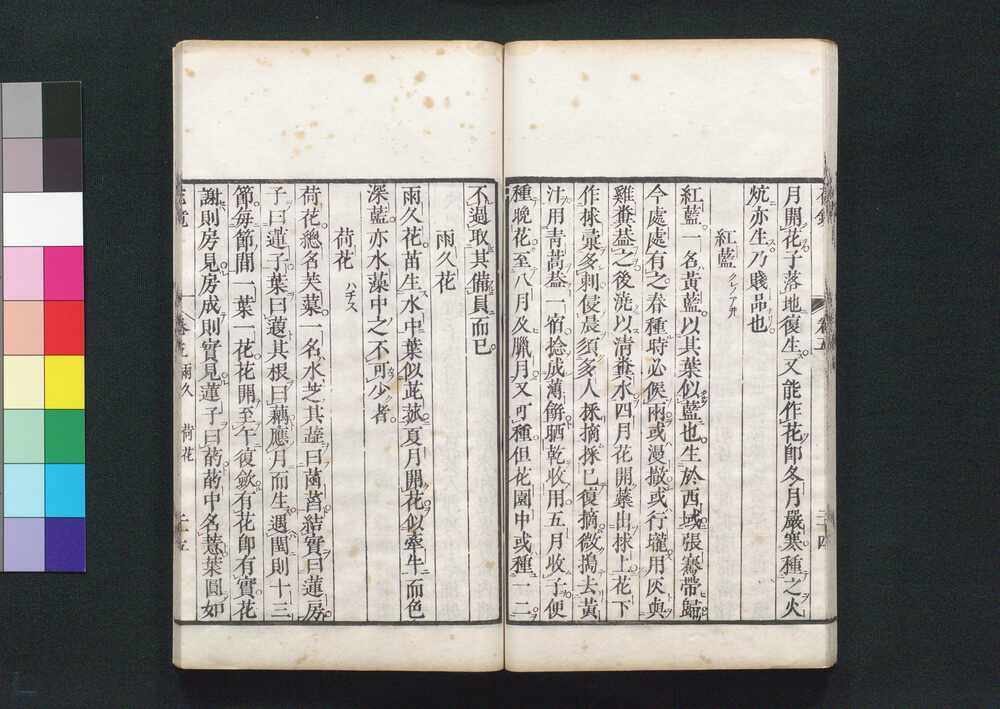 月開花子落地復生又能作花卽冬月嚴寒種之火
炕亦生乃賤品也
紅藍 クレノアヰ
紅藍一名黃藍以其葉似藍也生於西域張騫帶歸
今處處有之春種時必候雨或漫撒或行壠用灰與
雞糞蓋之後澆以清糞水四月花開蘂出捄上花下
作捄彙多刺侵晨須多人採摘採已復摘微搗去黃
汁用靑蒿蓋一宿捻成薄餠晒乾收用五月收子便
種晚花至八月及臘月又可種但花園中或種一二
不過取其備員而已
雨久花
雨久花苗生水中葉似茈菰夏月開花似牽牛而色
深藍亦水藻中之不可少者
荷花 ハチス
荷花總名芙蕖一名水芝其蕋曰菡萏結實曰蓮房
子曰蓮子葉曰蕸其根曰藕應月而生遇閏則十三
節每節間一葉一花花開至午復斂有花卽有實花
謝則房見房成則實見蓮子曰菂菂中名薏葉圓如
雨久 荷花